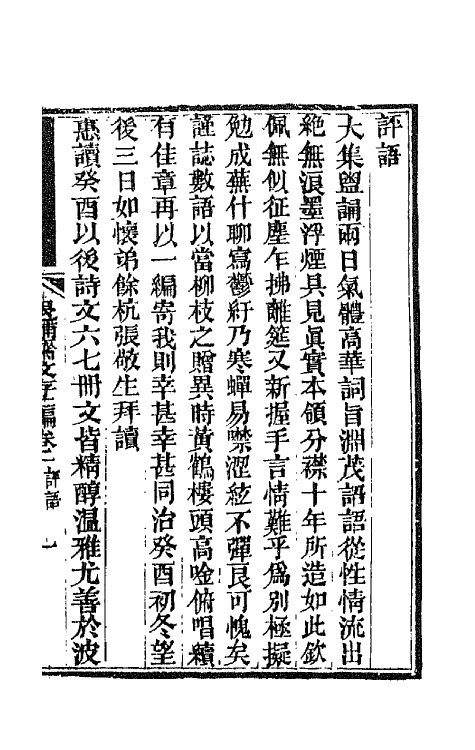 評語
大集盥誦兩日氣體高華詞旨淵茂語語從性情流出
絶無浪墨浮煙具見眞實本領分襟十年所造如此欽
佩無似征塵乍拂離筵又新握手言情難乎爲別極擬
勉成蕪什聊寫鬱紆乃寒蟬易噤澀絃不彈良可愧矣
謹誌數語以當柳枝之贈異時黃鶴樓頭高唫俯唱續
有佳章再以一編寄我則幸甚幸甚同治癸酉初冬望
後三日如懷弟餘杭張敬生拜讀
惠讀癸酉以後詩文六七冊文皆精醇溫雅尤善於波
文存二編卷二 評語 一